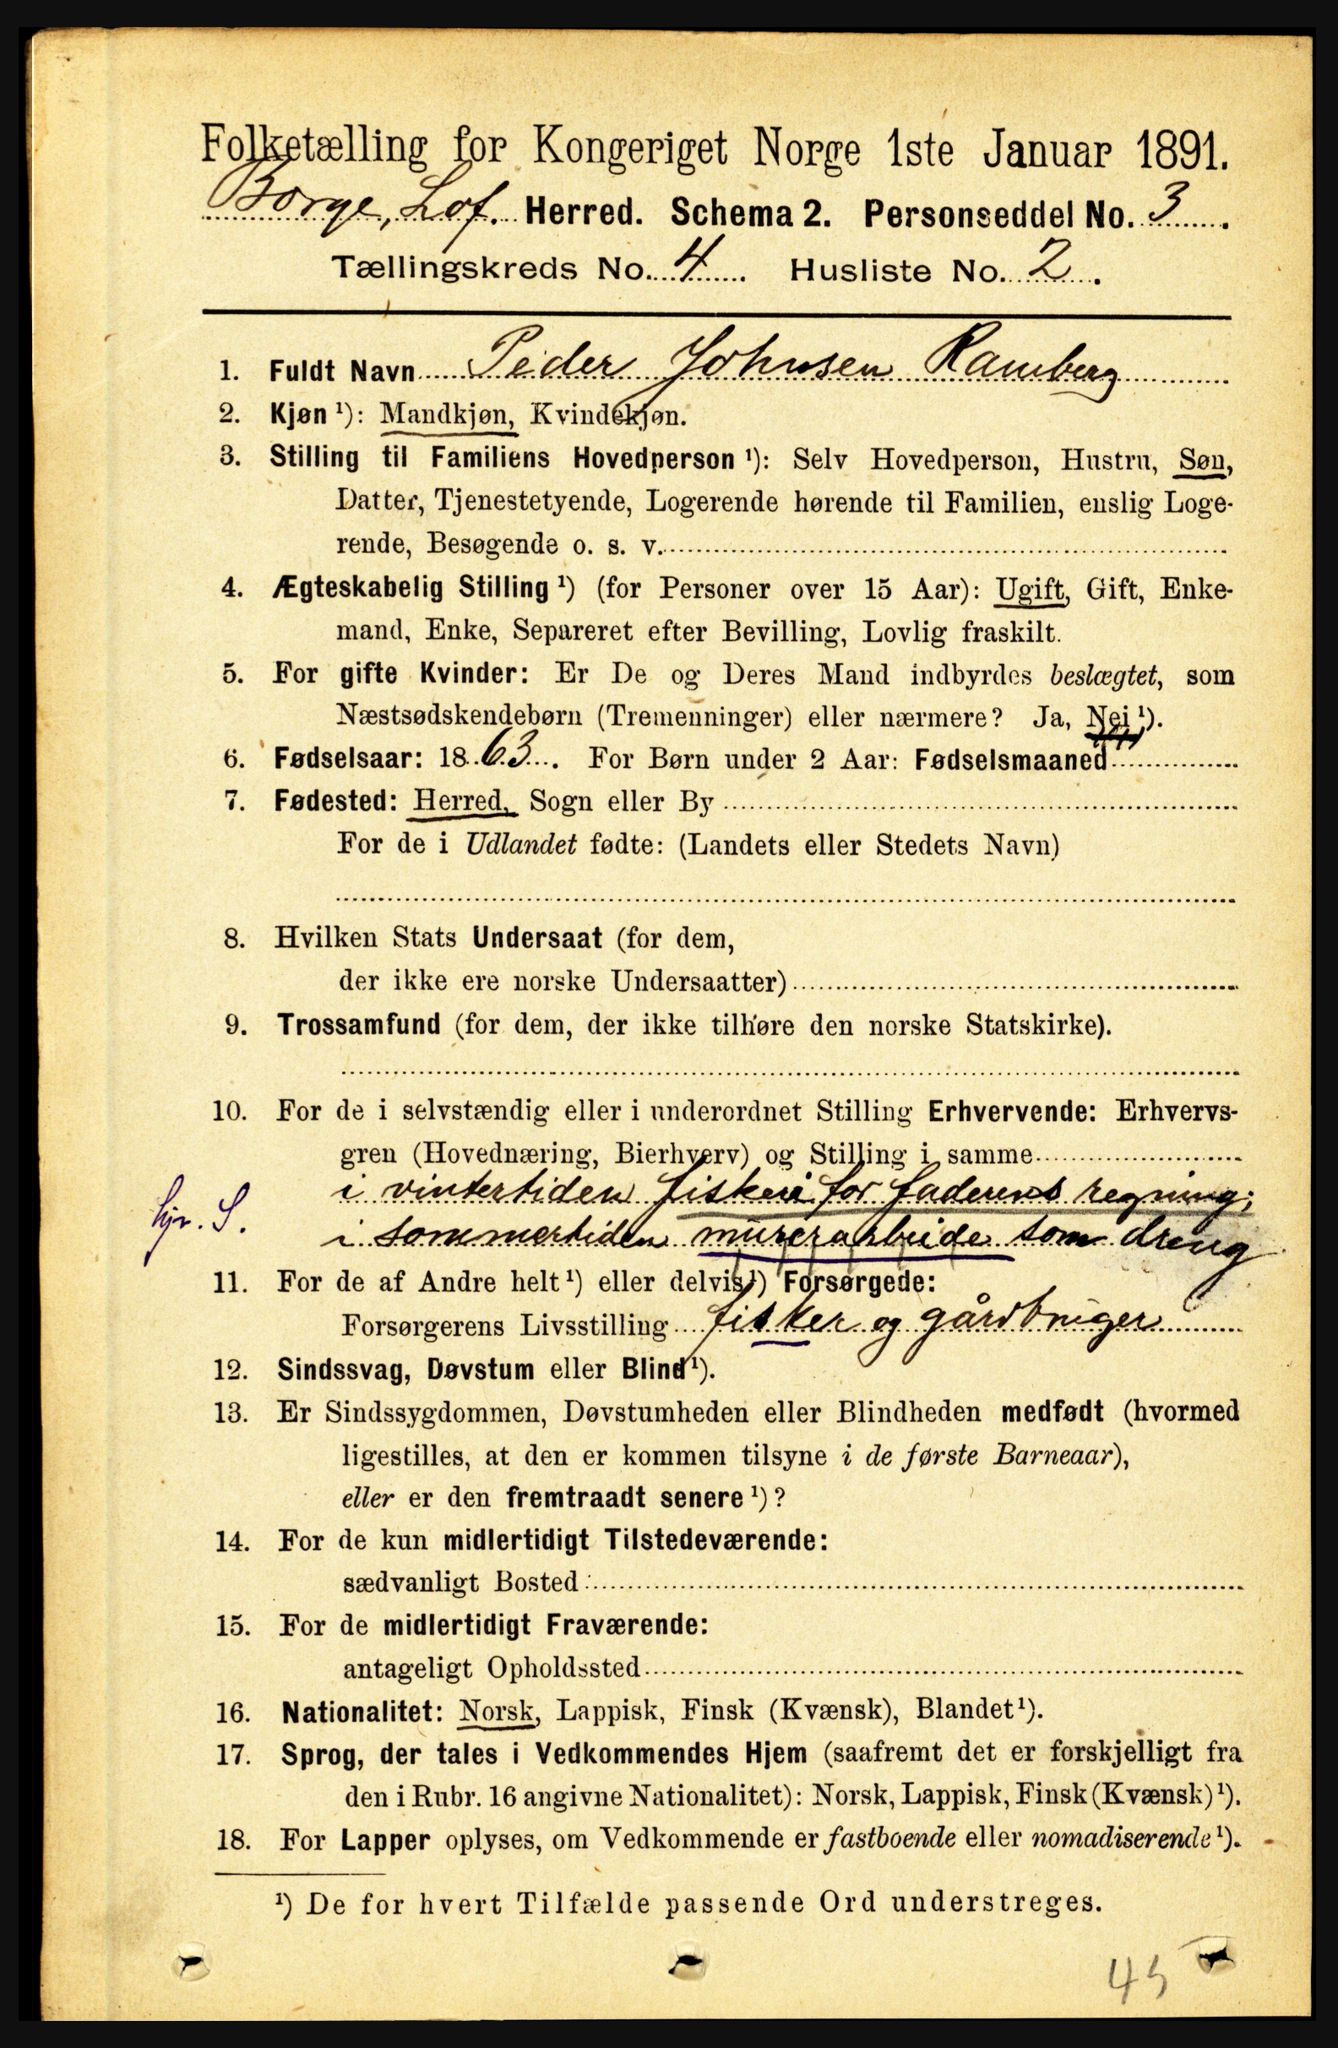 Folketælling for Kongeriget Norge 1ste Januar 1891.
Borge, Lof. Herred. Schema 2. Personseddel No. 3.
Tællingskreds No. 4. Husliste No. 2.
1. Fuldt Navn Peder Johnsen Ramberg
2. Kjøn ¹): Mandkjøn, Kvindekjøn.
3. Stilling til Familiens Hovedperson ¹): Selv Hovedperson, Hustru, Søn,
Datter, Tjenestetyende, Logerende hørende til Familien, enslig Loge-
rende, Besøgende o. s. v.
4. Ægteskabelig Stilling ¹) (for Personer over 15 Aar): Ugift, Gift, Enke-
mand, Enke, Separeret efter Bevilling, Lovlig fraskilt.
5. For gifte Kvinder: Er De og Deres Mand indbyrdes beslægtet, som
Næstsødskendebørn (Tremenninger) eller nærmere? Ja, Nei ¹).
6. Fødselsaar: 1863. For Børn under 2 Aar: Fødselsmaaned
7. Fødested: Herred, Sogn eller By
For de i Udlandet fødte: (Landets eller Stedets Navn)
8. Hvilken Stats Undersaat (for dem,
der ikke ere norske Undersaatter)
9. Trossamfund (for dem, der ikke tilhøre den norske Statskirke).
10. For de i selvstændig eller i underordnet Stilling Erhvervende: Erhvervs-
gren (Hovednæring, Bierhverv) og Stilling i samme
i vintertiden fiskeri for faderens regning;
hjv. S. i sommertiden murerarbeide som dreng
11. For de af Andre helt ¹) eller delvis ¹) Forsørgede:
Forsørgerens Livsstilling fisker og gårdbruger
12. Sindssvag, Døvstum eller Blind ¹).
13. Er Sindssygdommen, Døvstumheden eller Blindheden medfødt (hvormed
ligestilles, at den er kommen tilsyne i de første Barneaar),
eller er den fremtraadt senere ¹)?
14. For de kun midlertidigt Tilstedeværende:
sædvanligt Bosted
15. For de midlertidigt Fraværende:
antageligt Opholdssted
16. Nationalitet: Norsk, Lappisk, Finsk (Kvænsk), Blandet ¹).
17. Sprog, der tales i Vedkommendes Hjem (saafremt det er forskjelligt fra
den i Rubr. 16 angivne Nationalitet): Norsk, Lappisk, Finsk (Kvænsk) ¹).
18. For Lapper oplyses, om Vedkommende er fastboende eller nomadiserende ¹).
¹) De for hvert Tilfælde passende Ord understreges.
45